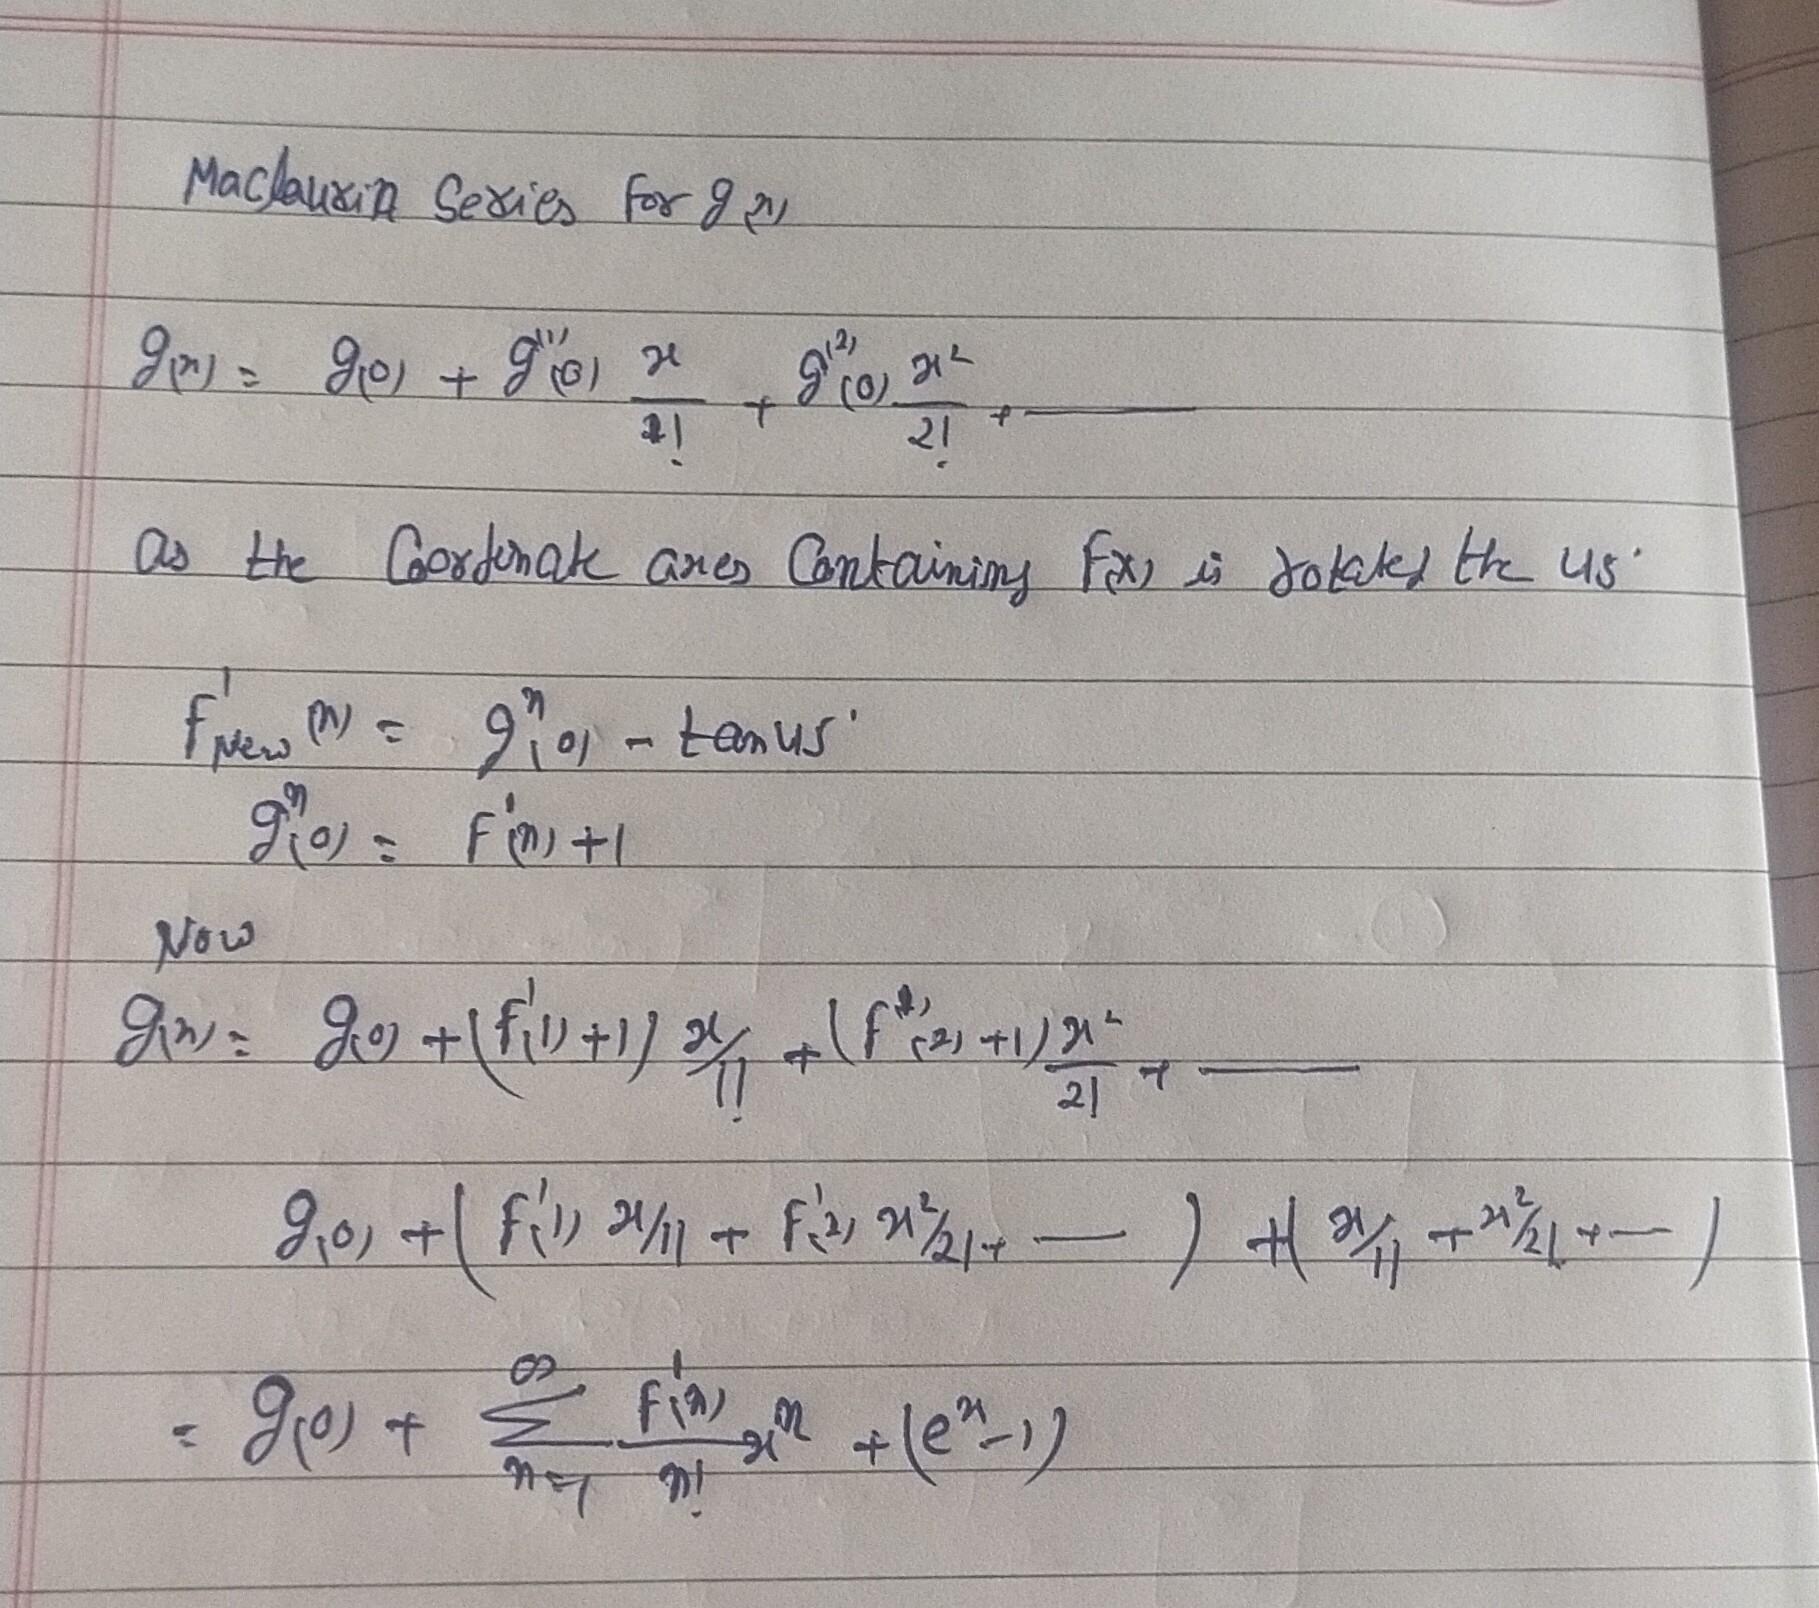 Maclaurin Series for g(x)
g(x) = g(0) + g⁽¹⁾(0) x/1! + g⁽²⁾(0) x²/2! + ———
as the Coordinate axes Containing F(x) is rotated the 45°
F'New (n) = gⁿ(0) - tan45°
gⁿ(0) = F'(n) + 1
Now
g(x) = g(0) + (f'(1) + 1) x/1! + (f'(2) + 1) x²/2! + ———
g(0) + ( F'(1) x/1! + F'(2) x²/2! + — ) + ( x/1! + x²/2! + — )
= g(0) + ∞∑n=1 F'(n)/n! xⁿ + (eˣ - 1)